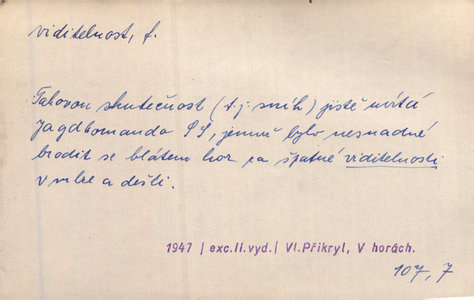 viditelnost, f.
Takovou skutečnost (t. j. sníh) jistě uvítá
Jagdkomando SS, jemuž bylo nesnadné
brodit se blátem hor za špatné viditelnosti
v mlze a dešti.
1947 | exc.II.vyd.| Vl.Přikryl, V horách.
107, 7